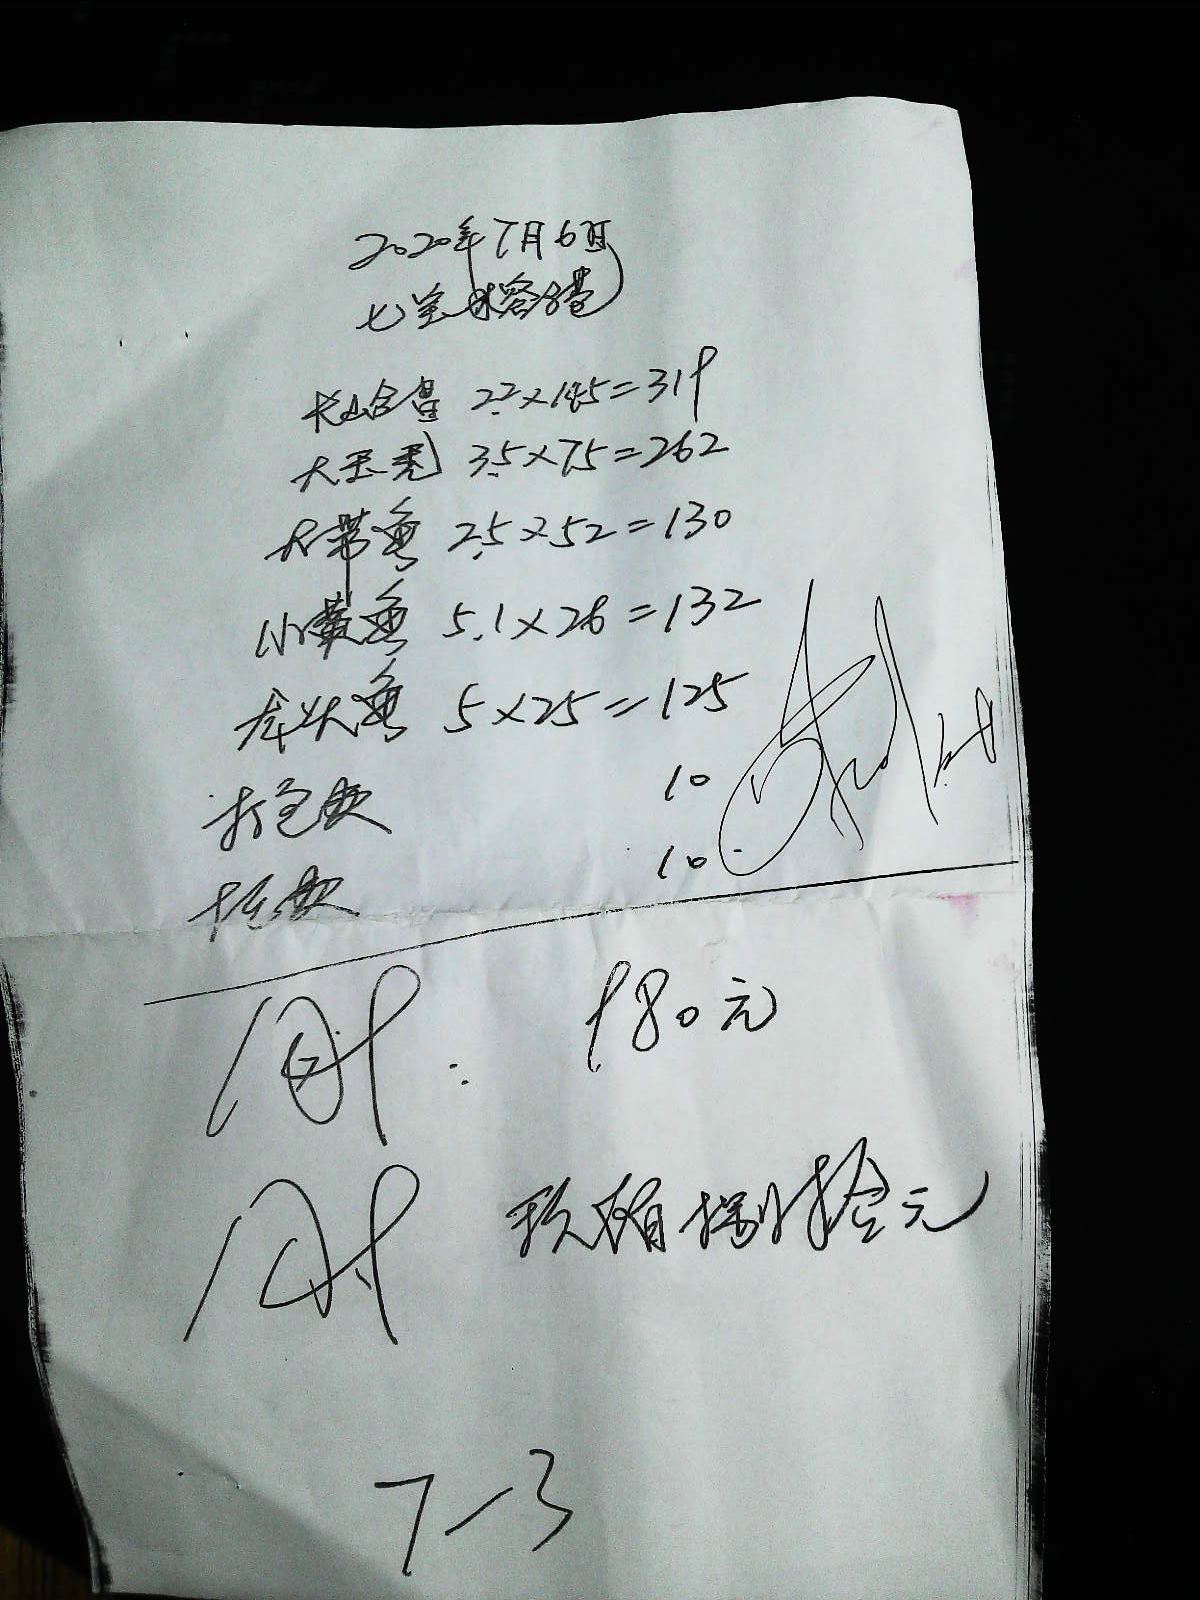 2020年7月6日
七宝
2.2×145=319
大玉秃 3.5×75=262
大带鱼 2.5×52=130
小黄鱼 5.1×26=132
龙头鱼 5×25=125
打包费 10
费 10
: 980元
玖佰捌拾元
7-3